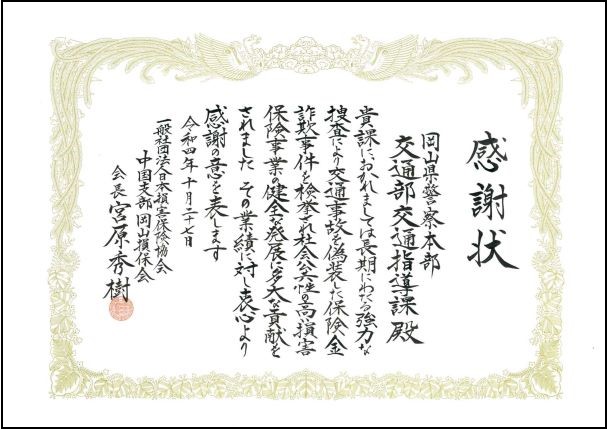 感謝状
岡山県警察本部
交通部交通指導課 殿
貴課におかれましては長期にわたる強力な
捜査により交通事故を偽装した保険金
詐欺事件を検挙され社会公共性の高い損害
保険事業の健全な発展に多大な貢献を
されました その業績に対し衷心より
感謝の意を表します
令和四年十月二十七日
一般社団法人日本損害保険協会
中国支部岡山損保会
会長 宮原秀樹